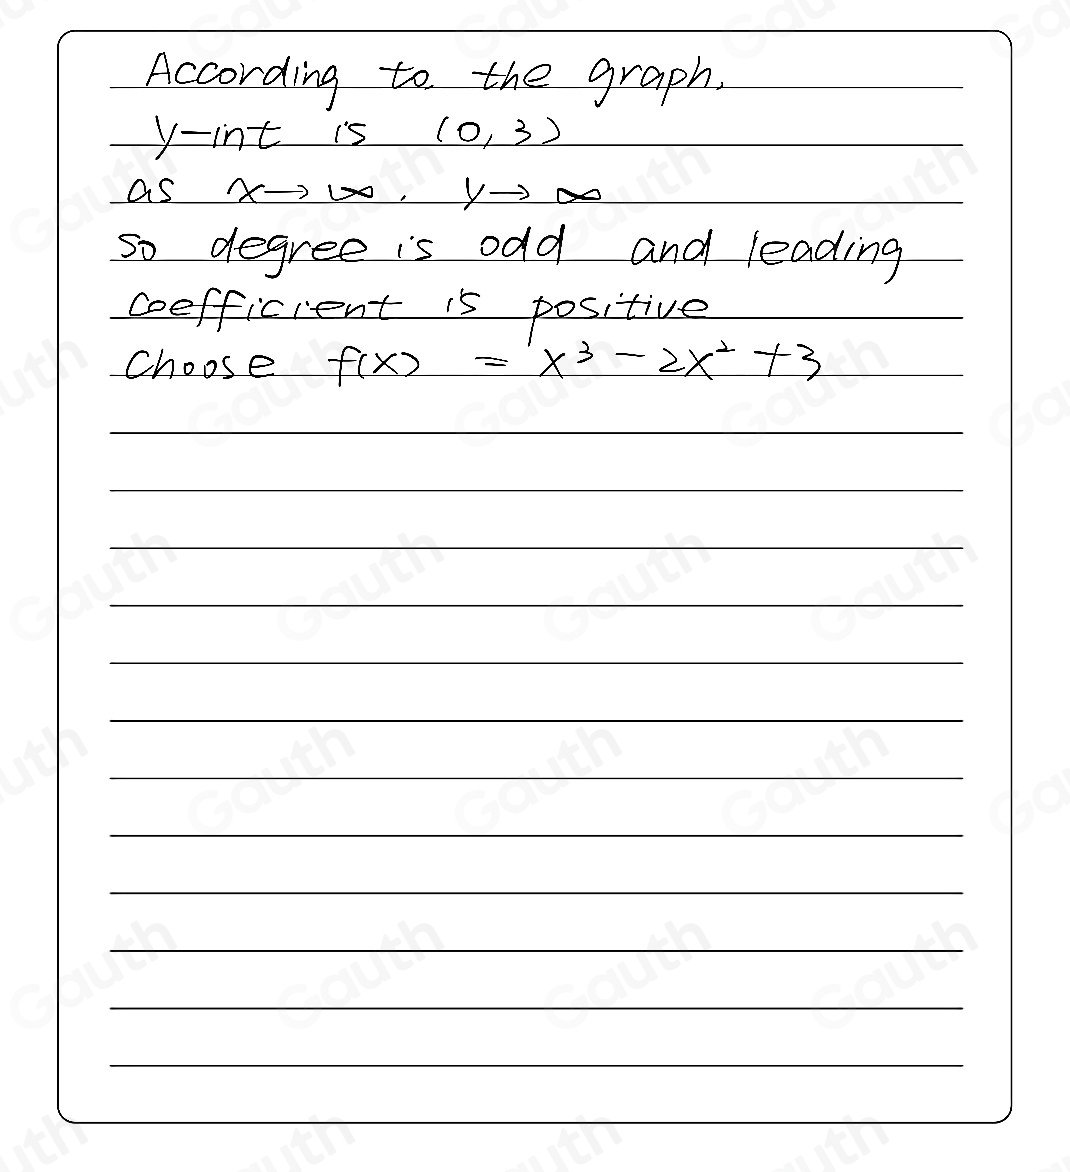 According to the graph,
y-int is (0,3)
as x→∞, y→∞
so degree is odd and leading
coefficient is positive
choose f(x) = x³-2x²+3